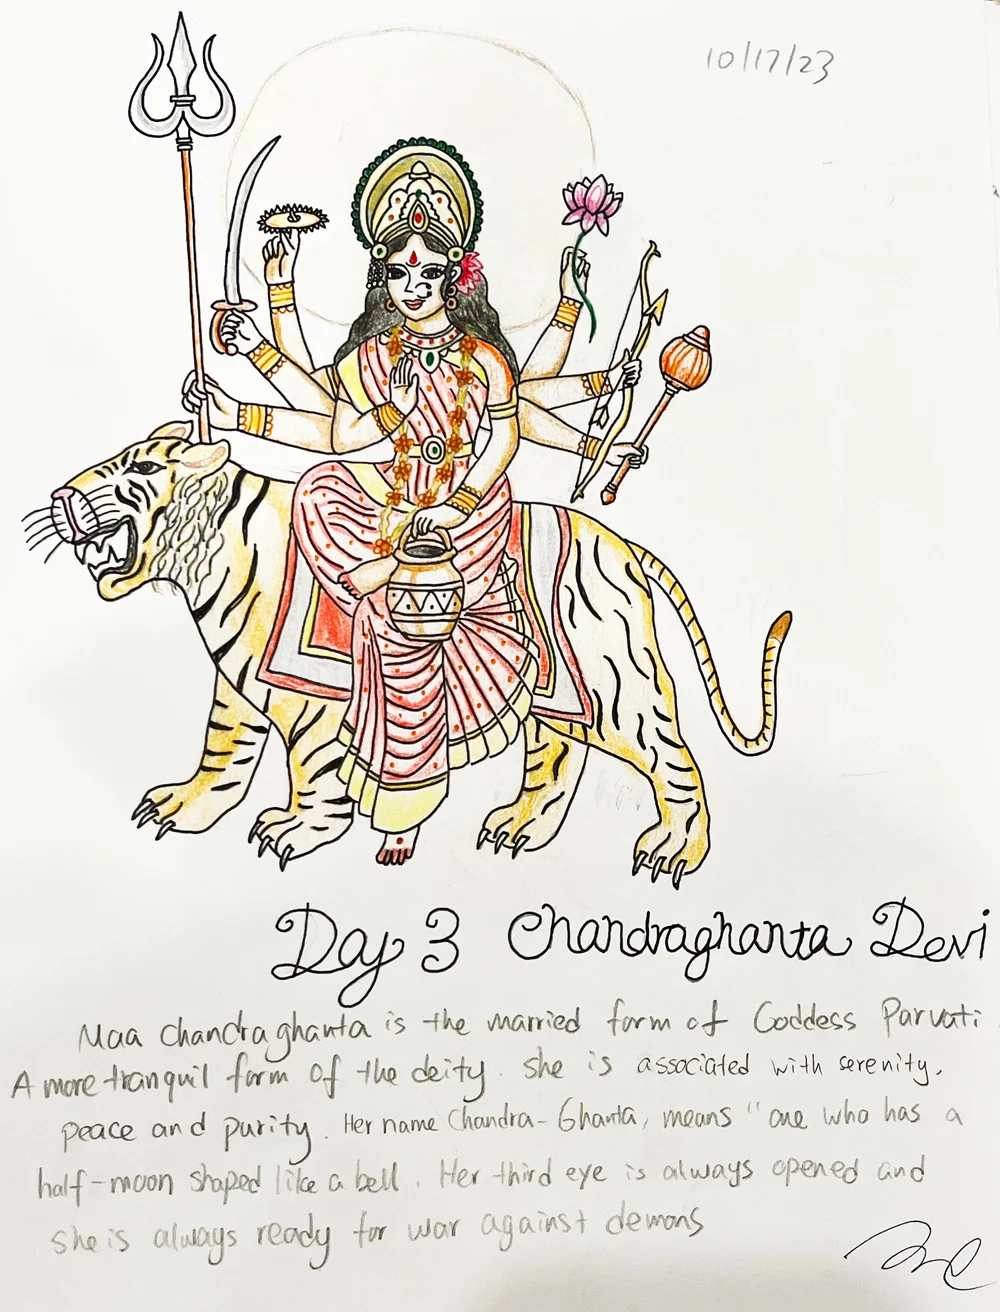 10/17/23
Day 3 Chandraghanta Devi
Maa Chandraghanta is the married form of Goddess Parvati.
A more tranquil form of the deity. She is associated with serenity,
peace and purity. Her name Chandra-Ghanta, means "one who has a
half-moon shaped like a bell. Her third eye is always opened and
she is always ready for war against demons